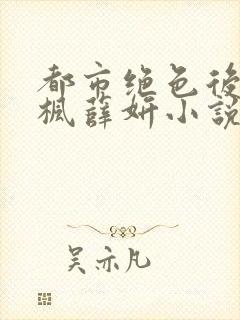 都市绝色後
楓薛妍小説
吴亦凡